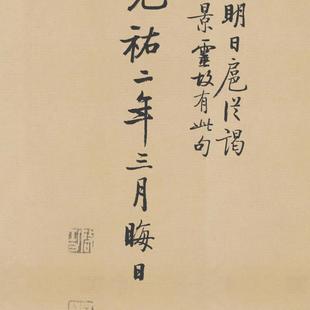 明日扈從謁
景靈故有此句
元祐二年三月晦日